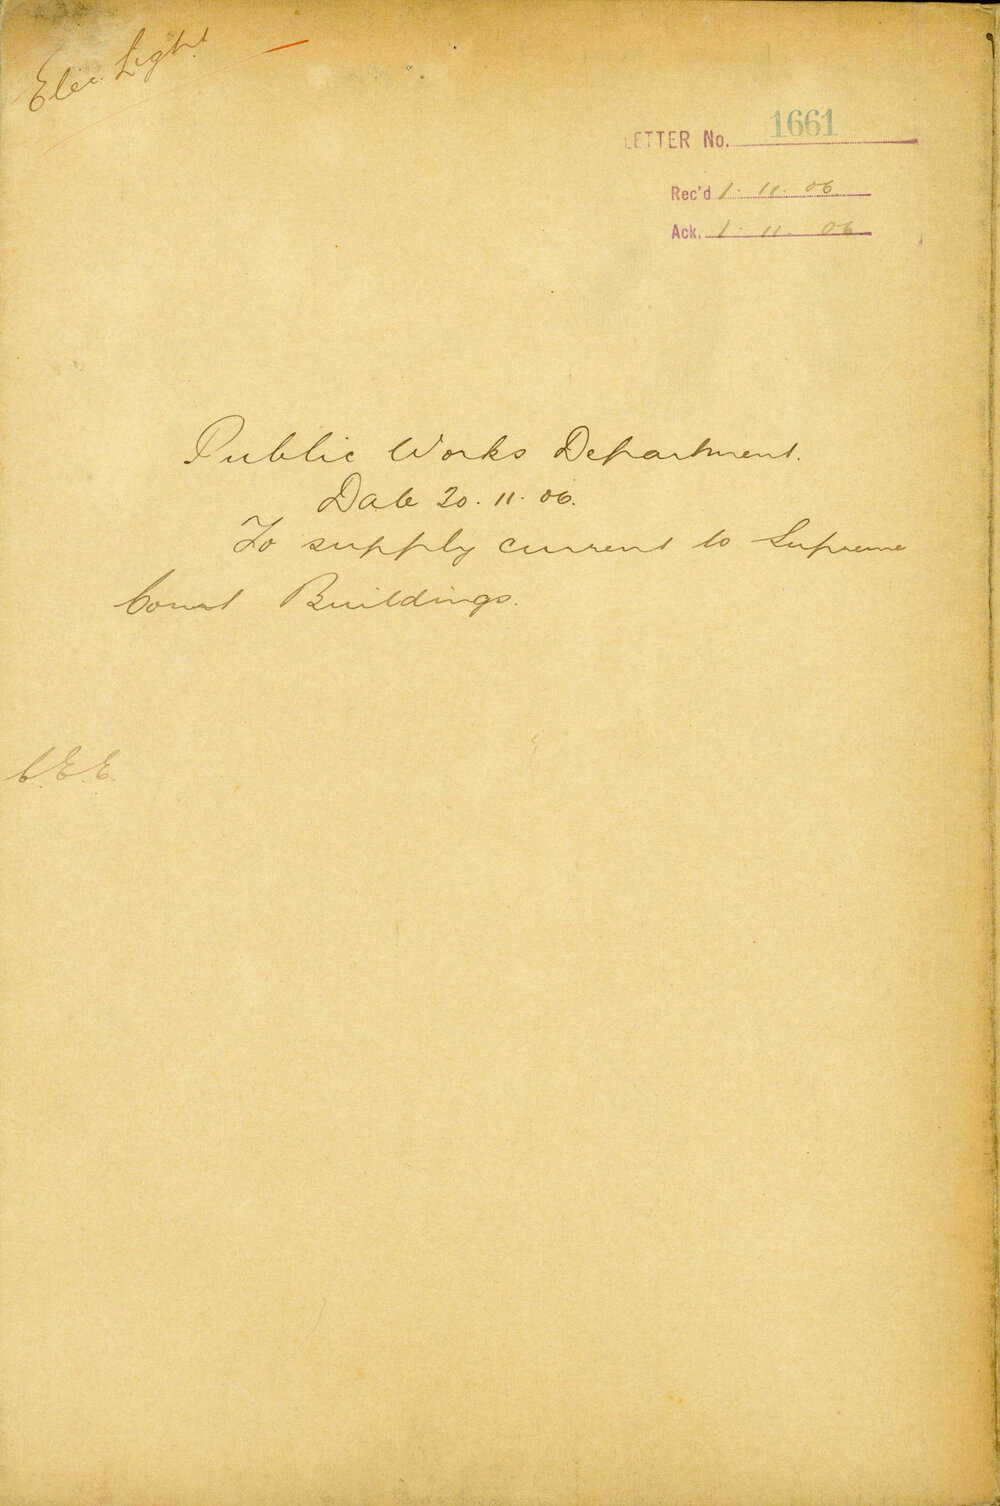 Elec. Light
LETTER No. 1661
Rec'd 1. 11. 06
Ack. 1. 11. 06
Public Works Department.
Date 20. 11. 06.
To supply current to Supreme
Court Buildings.
C.E.E.